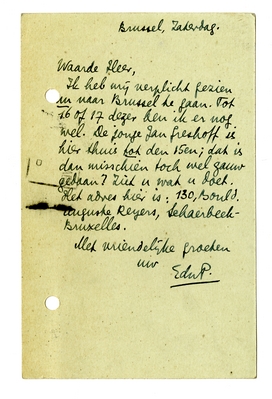 Brussel, Zaterdag.
Waarde Heer,
Ik heb mij verplicht gezien
in naar Brussel te gaan. Tot
16 of 17 dezer ben ik er nog
wel. De jonge Jan Greshoff is
hier thuis tot den 15en; dat is
dan misschien toch wel gauw
gedaan? Ziet u wat u doet.
Het adres hier is: 130, Bould.
Auguste Reyers, Schaerbeek-
Bruxelles.
Met vriendelijke groeten
uw
EduP.